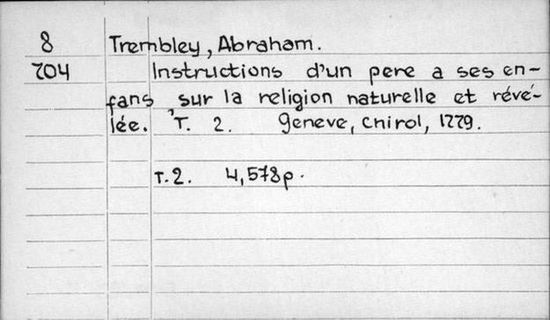 8 Trembley, Abraham.
704 Instructions d'un pere a ses en-
fans, sur la religion naturelle et révé-
lée. T. 2. Geneve, Chirol, 1779.
T.2. 4,578p.